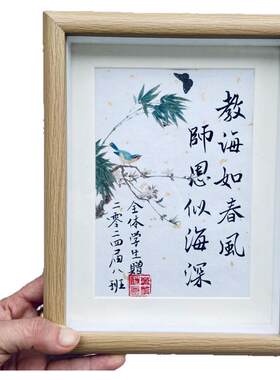 教誨如春風
師恩似海深
全体学生贈
二零二四届八班